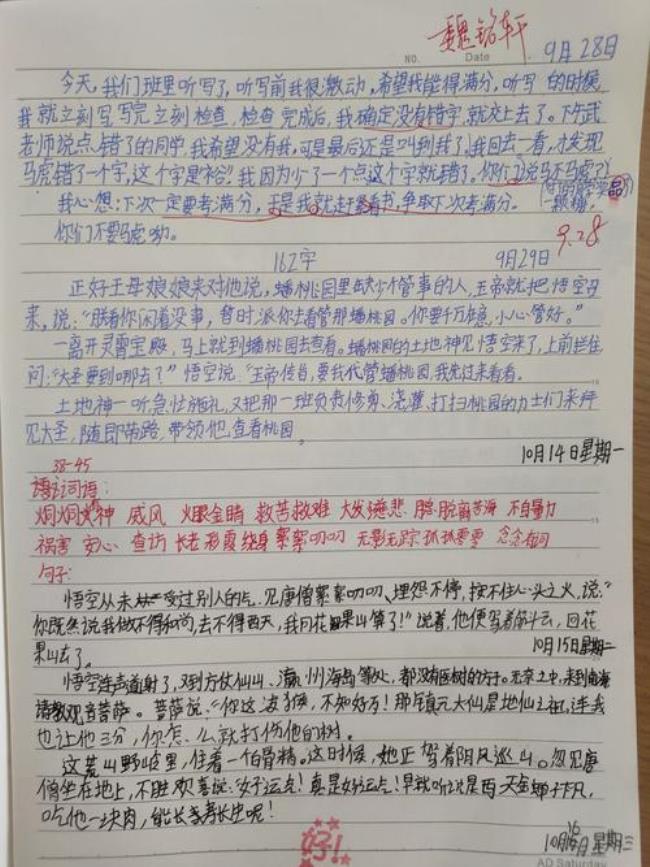 魏铭轩
NO. Date 9月28日
今天,我们班里听写了,听写前我很激动,希望我能得满分,听写的时候
我就立刻写,写完立刻检查,检查完成后,我确定没有错字,就交上去了。下午武
老师说点错了的同学,我希望没有我,可是最后还是叫到我了,我回去一看,才发现
马虎错了一个字,这个字是"裕"我因为少了一个点这个字就错了。你们说马不马虎?
我心想:下次一定要考满分,于是我就赶紧看书,争取下次考满分。
一颗糖
你们不要马虎呦。
9.28
162字 9月29日
正好王母娘娘来对他说,蟠桃园里缺少个管事的人,玉帝就把悟空召
来,说:"朕看你闲着没事,暂时派你去看管那蟠桃园。你要千万注意,小心管好。"
一离开灵霄宝殿,马上就到蟠桃园去查看。蟠桃园的土地神见悟空来了,上前拦住
问:"大圣要到哪去?"悟空说:"玉帝传旨,要我代管蟠桃园,我先过来看看。
土地神一听急忙施礼,又把那一班负责修剪、浇灌、打扫桃园的力士们来拜
见大圣,随即带路,带领他查看桃园。
10月14日星期一
38-45
词语:
炯炯有神 威风 火眼金睛 救苦救难 大发慈悲 脱离苦海 不自量力
祸害 安心 查访 长老 彩霞 绕身 絮絮叨叨 无影无踪 孤孤零零 念念有词
句子:
悟空从未受过别人的气,见唐僧絮絮叨叨、埋怨不停,按不住心头之火,说:"
你既然说我做不得和尚,去不得西天,我回花果山算了!"说着,他便驾着筋斗云,回花
果山去了。 10月15日星期二
悟空连声道谢了,又到方丈仙山、瀛州海岛等处,都没有医树的方子。无奈之中,来到南海
请教观音菩萨。菩萨说:"你这泼猴,不知好歹!那镇元大仙是地仙之祖,连我
也让他三分,你怎么就打伤他的树。
这荒山野岭里,住着一个白骨精。这时候,她正驾着阴风巡山。忽见唐
僧坐在地上,不胜欢喜说:"好运气!真是好运气!早就听说是西天金蝉子下凡,
吃他一块肉,能长生寿长生呢!
好!
10月16日星期三
AD Saturday